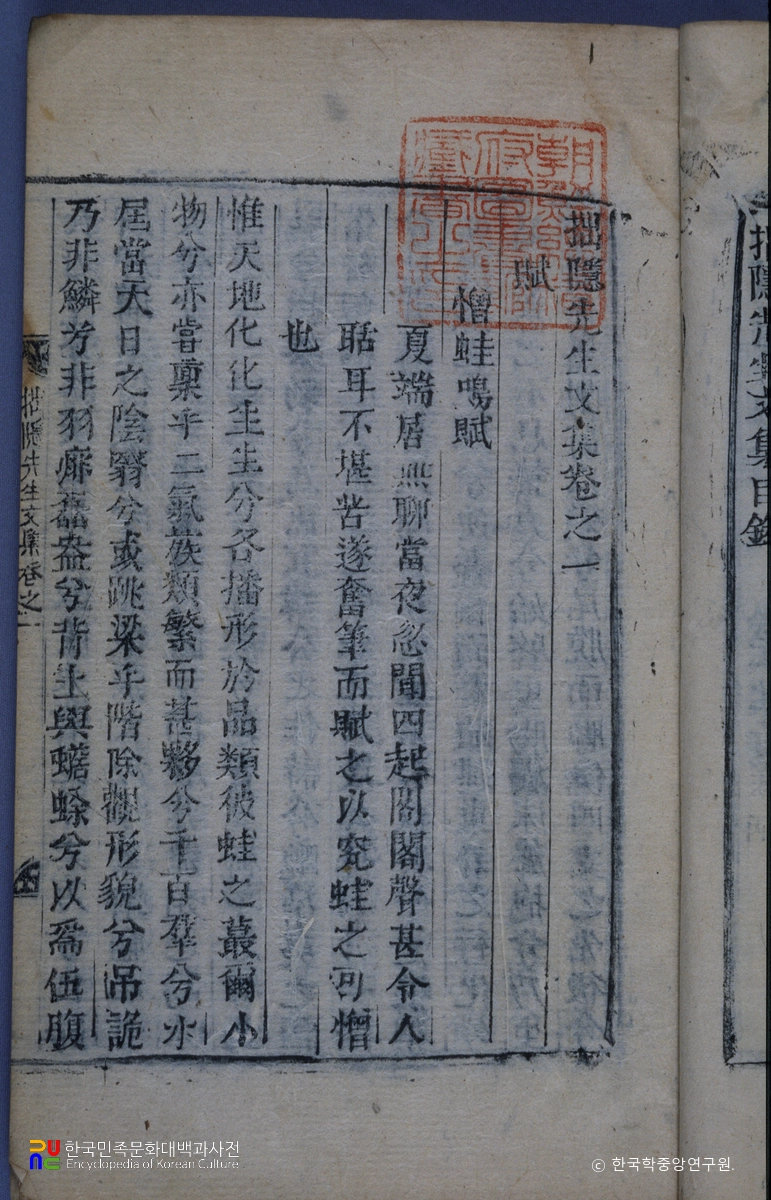 拙隱先生文集目錄
拙隱先生文集卷之一
賦
憎蛙鳴賦
夏端居無聊當夜忽聞四起閤閤聲甚令人
聒耳不堪苦遂奮筆而賦之以究蛙之可憎
也
惟天地化化生生兮各播形於品類彼蛙之蕞爾小
物兮亦嘗稟乎二氣族類繁而甚夥兮千百羣兮水
居當天日之陰翳兮或跳梁乎階除觀形貌兮吊詭
乃非鱗兮非羽靡磊盎兮背上與蟾蜍兮以爲伍腹
拙隱先生文集卷之一
한국민족문화대백과사전
Encyclopedia of Korean Culture
© 한국학중앙연구원.